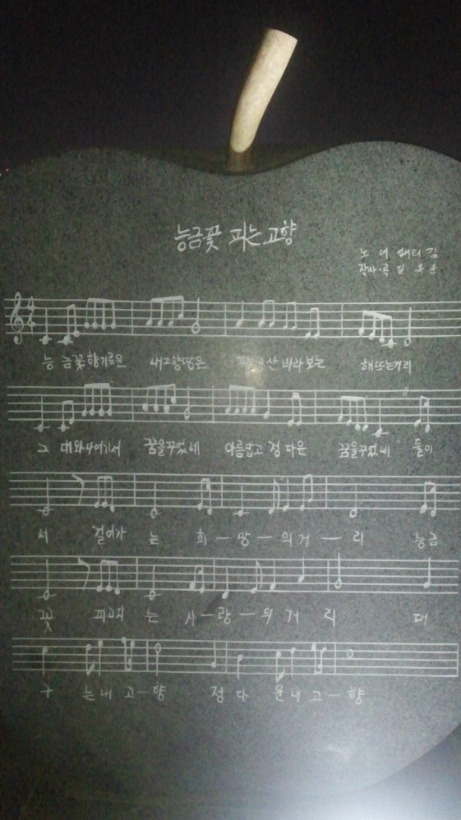 능금꽃 피는 고향
노 래 패티김
작사·곡 길 옥 윤
능 금꽃향기로운 내고향땅은 바라보는 해뜨는거리
그 대와나여기서 꿈을꾸었네 아름답고 정다운 꿈을꾸었네 둘이
서 걸어가 는 희 — 망 — 의거 — 리 능금
꽃 피고지 는 사 — 랑 — 의 거 리 대
구 는내 고 — 향 정 다 운내 고 — 향